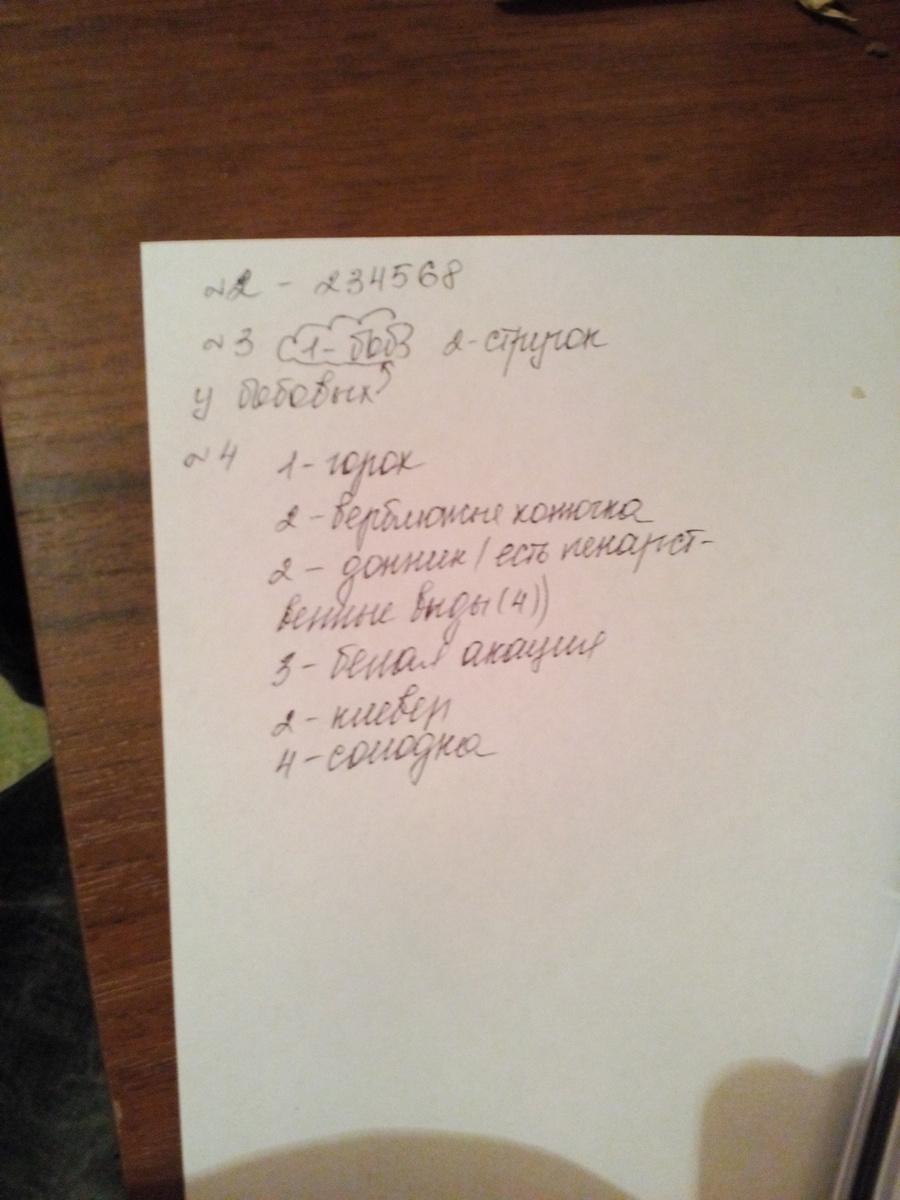 №2 - 234568
№3 1- боб 2-стручок
у бобовых
№4 1-горох
2-верблюжья колючка
2- донник (есть лекарст-
венные виды (4))
3-белая акация
2-клевер
4-солодка